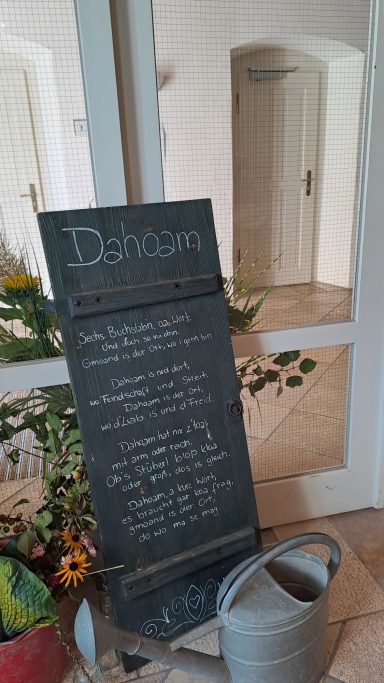 Dahoam
Sechs Buchstabn, oa Wort
Und doch so vü drin.
Gmoand is der Ort, wo i gern bin
Dahoam is ned dort,
wo Feindschaft und Streit.
Dahoam is der Ort,
wo d'Liab is und d'Freid.
Dahoam hat nix z'toa
mit arm oder reich.
Ob's Stüberl bloß kloa
oder groß, dos is gleich.
Dahoam, a kurz Wort,
es braucht gar koa Frag,
gmoand is der Ort,
do wo ma se mag